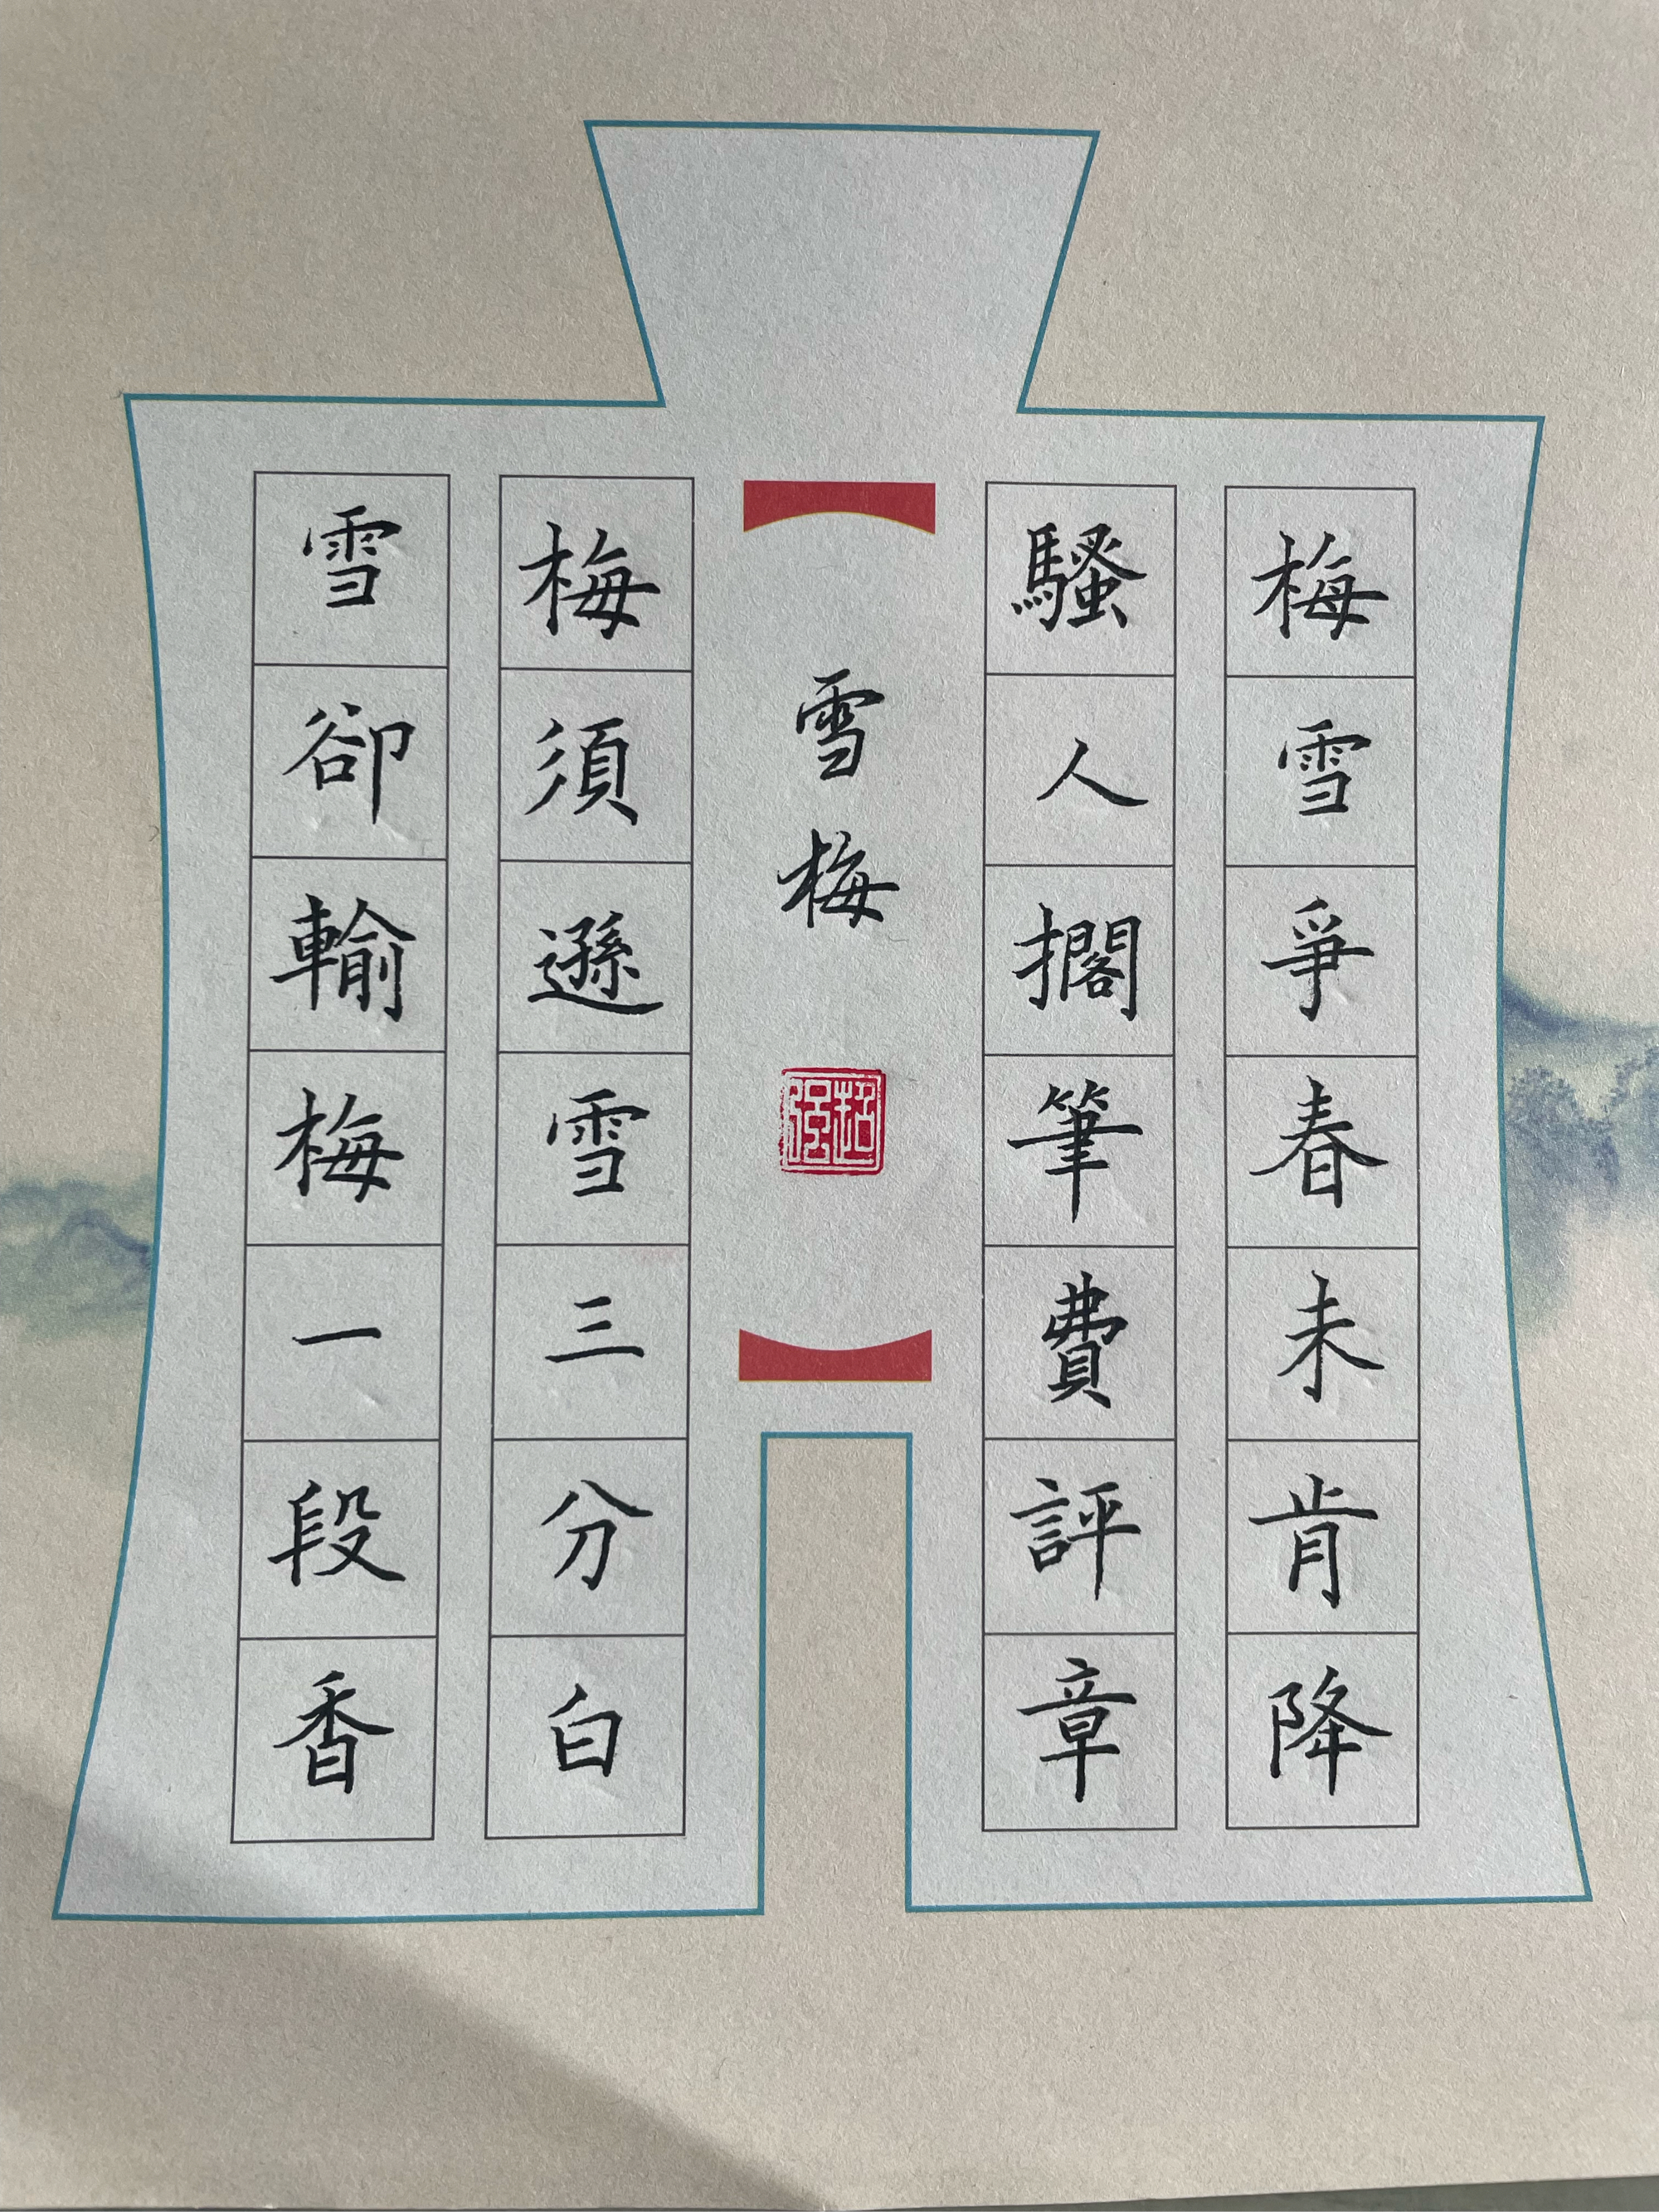 梅雪爭春未肯降
騷人擱筆費評章
雪梅
梅須遜雪三分白
雪卻輸梅一段香